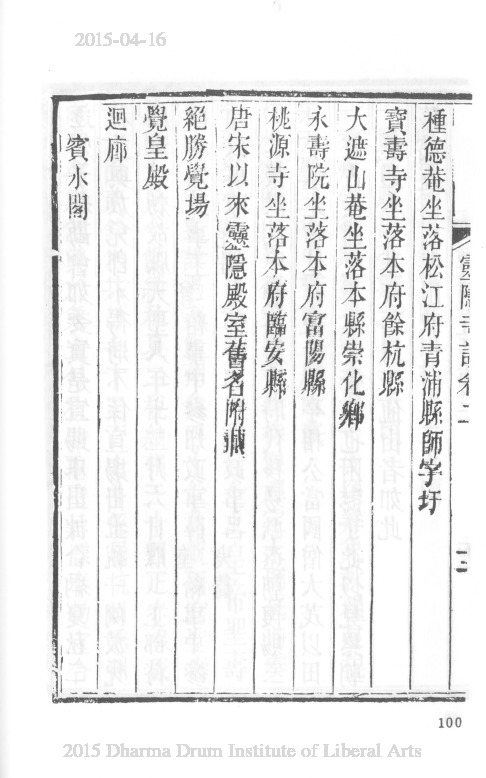 2015-04-16
靈隱寺誌卷二
種德菴坐落松江府青浦縣師字圩
寶壽寺坐落本府餘杭縣
大遮山菴坐落本縣崇化鄉
永壽院坐落本府富陽縣
桃源寺坐落本府臨安縣
唐宋以來靈隱殿室舊名附載
絕勝覺場
覺皇殿
迴廊
賓水閣
100
2015 Dharma Drum Institute of Liberal Arts